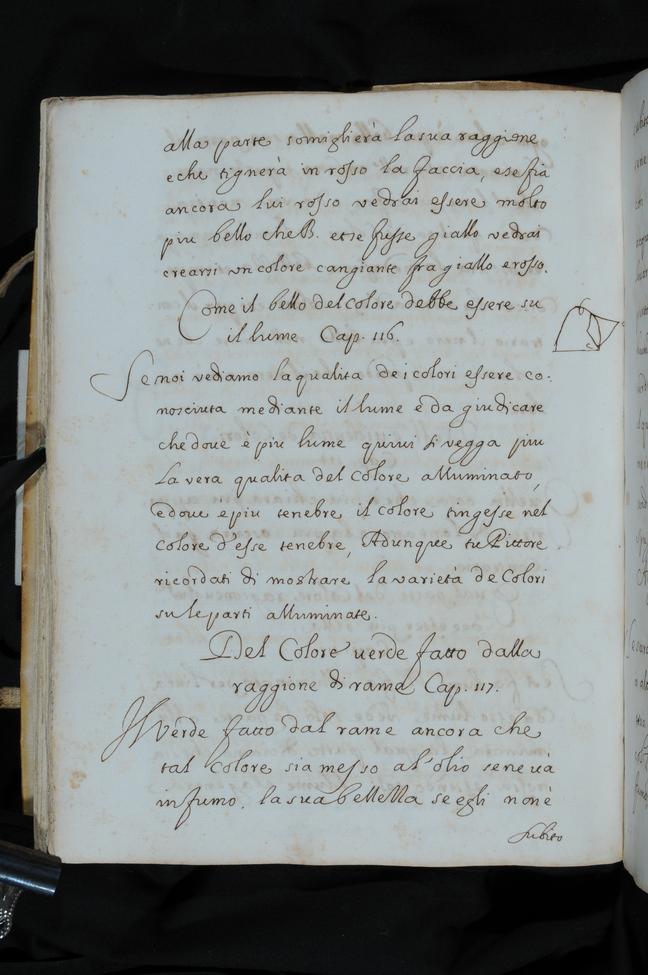 alla parte somiglierà la sua raggione
e che tignerà in rosso la faccia, e se fia
ancora lui rosso vedrai essere molto
piu bello che B. et se fusse giallo vedrai
crearsi un colore cangiante fra giallo e rosso.
Come il bello del colore debbe essere su
il lume Cap. 116.
Se noi vediamo la qualita de i colori essere co-
nosciuta mediante il lume è da giudicare
che doue è piu lume quiui si vegga piu
La vera qualita del Colore alluminato,
e doue è piu tenebre il colore tingesse nel
colore d'esse tenebre, Adunque tu Pittore
ricordati di mostrare la varietà de Colori
su le parti alluminate.
Del Colore uerde fatto dalla
raggione di rame Cap. 117.
Il Verde fatto dal rame ancora che
tal Colore sia messo al'olio se ne uà
in fumo. la sua bellezza se egli non è
subito